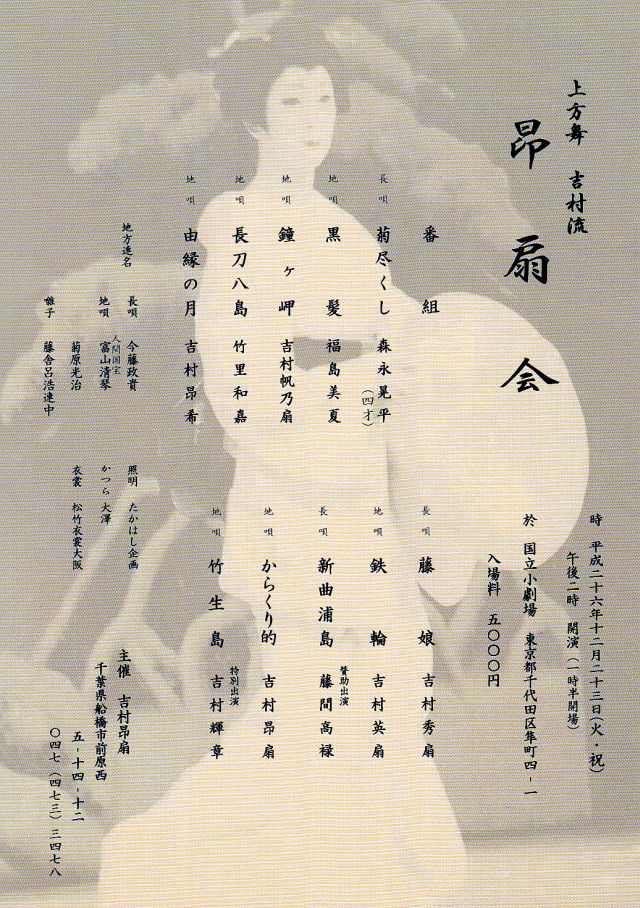 上方舞　吉村流
昂扇会
時　平成二十六年十二月二十三日(火・祝)
午後二時　開演(一時半開場)
於　国立小劇場　東京都千代田区隼町四-一
入場料　五〇〇〇円
番組
長唄　菊尽くし　森永晃平
(四才)
地唄　黒髪　福島美夏
地唄　鐘ヶ岬　吉村帆乃扇
地唄　長刀八島　竹里和嘉
地唄　由縁の月　吉村昂希
長唄　藤娘　吉村秀扇
地唄　鉄輪　吉村英扇
賛助出演
長唄　新曲浦島　藤間高禄
地唄　からくり的　吉村昂扇
特別出演
地唄　竹生島　吉村輝章
地方連名
長唄　今藤政貴
人間国宝
地唄　富山清琴
菊原光治
囃子　藤舎呂浩連中
照明　たかはし企画
かつら　大澤
衣裳　松竹衣裳大阪
主催　吉村昂扇
千葉県船橋市前原西
五-十四-十二
〇四七(四七三)三四七八